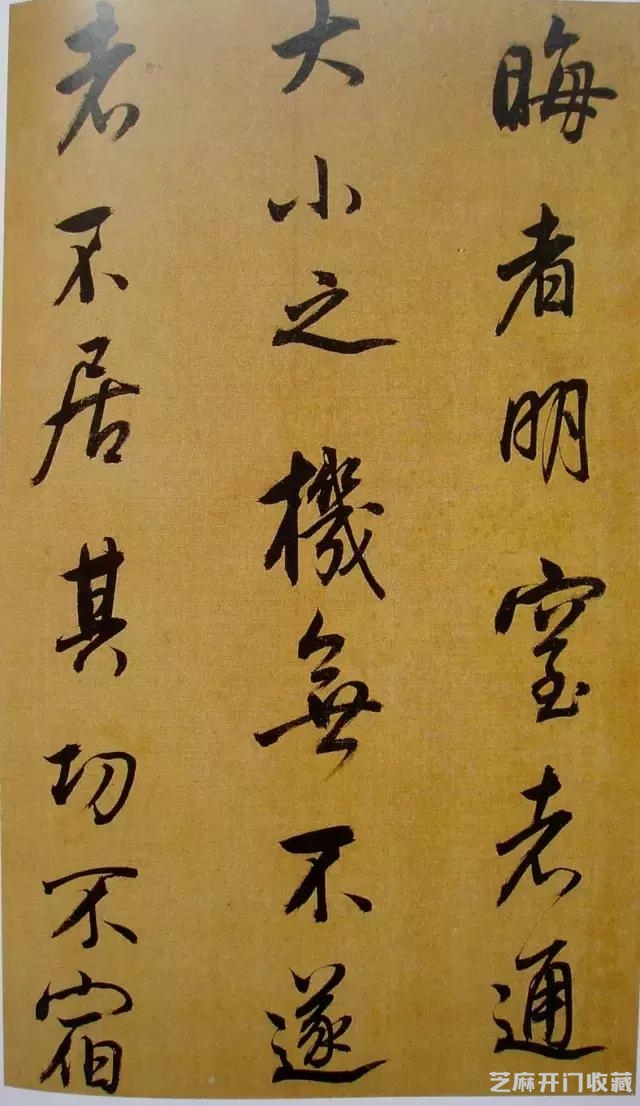 晦者明窒者通
大小之機無不遂
者不居其功不宿
芝麻开门收藏